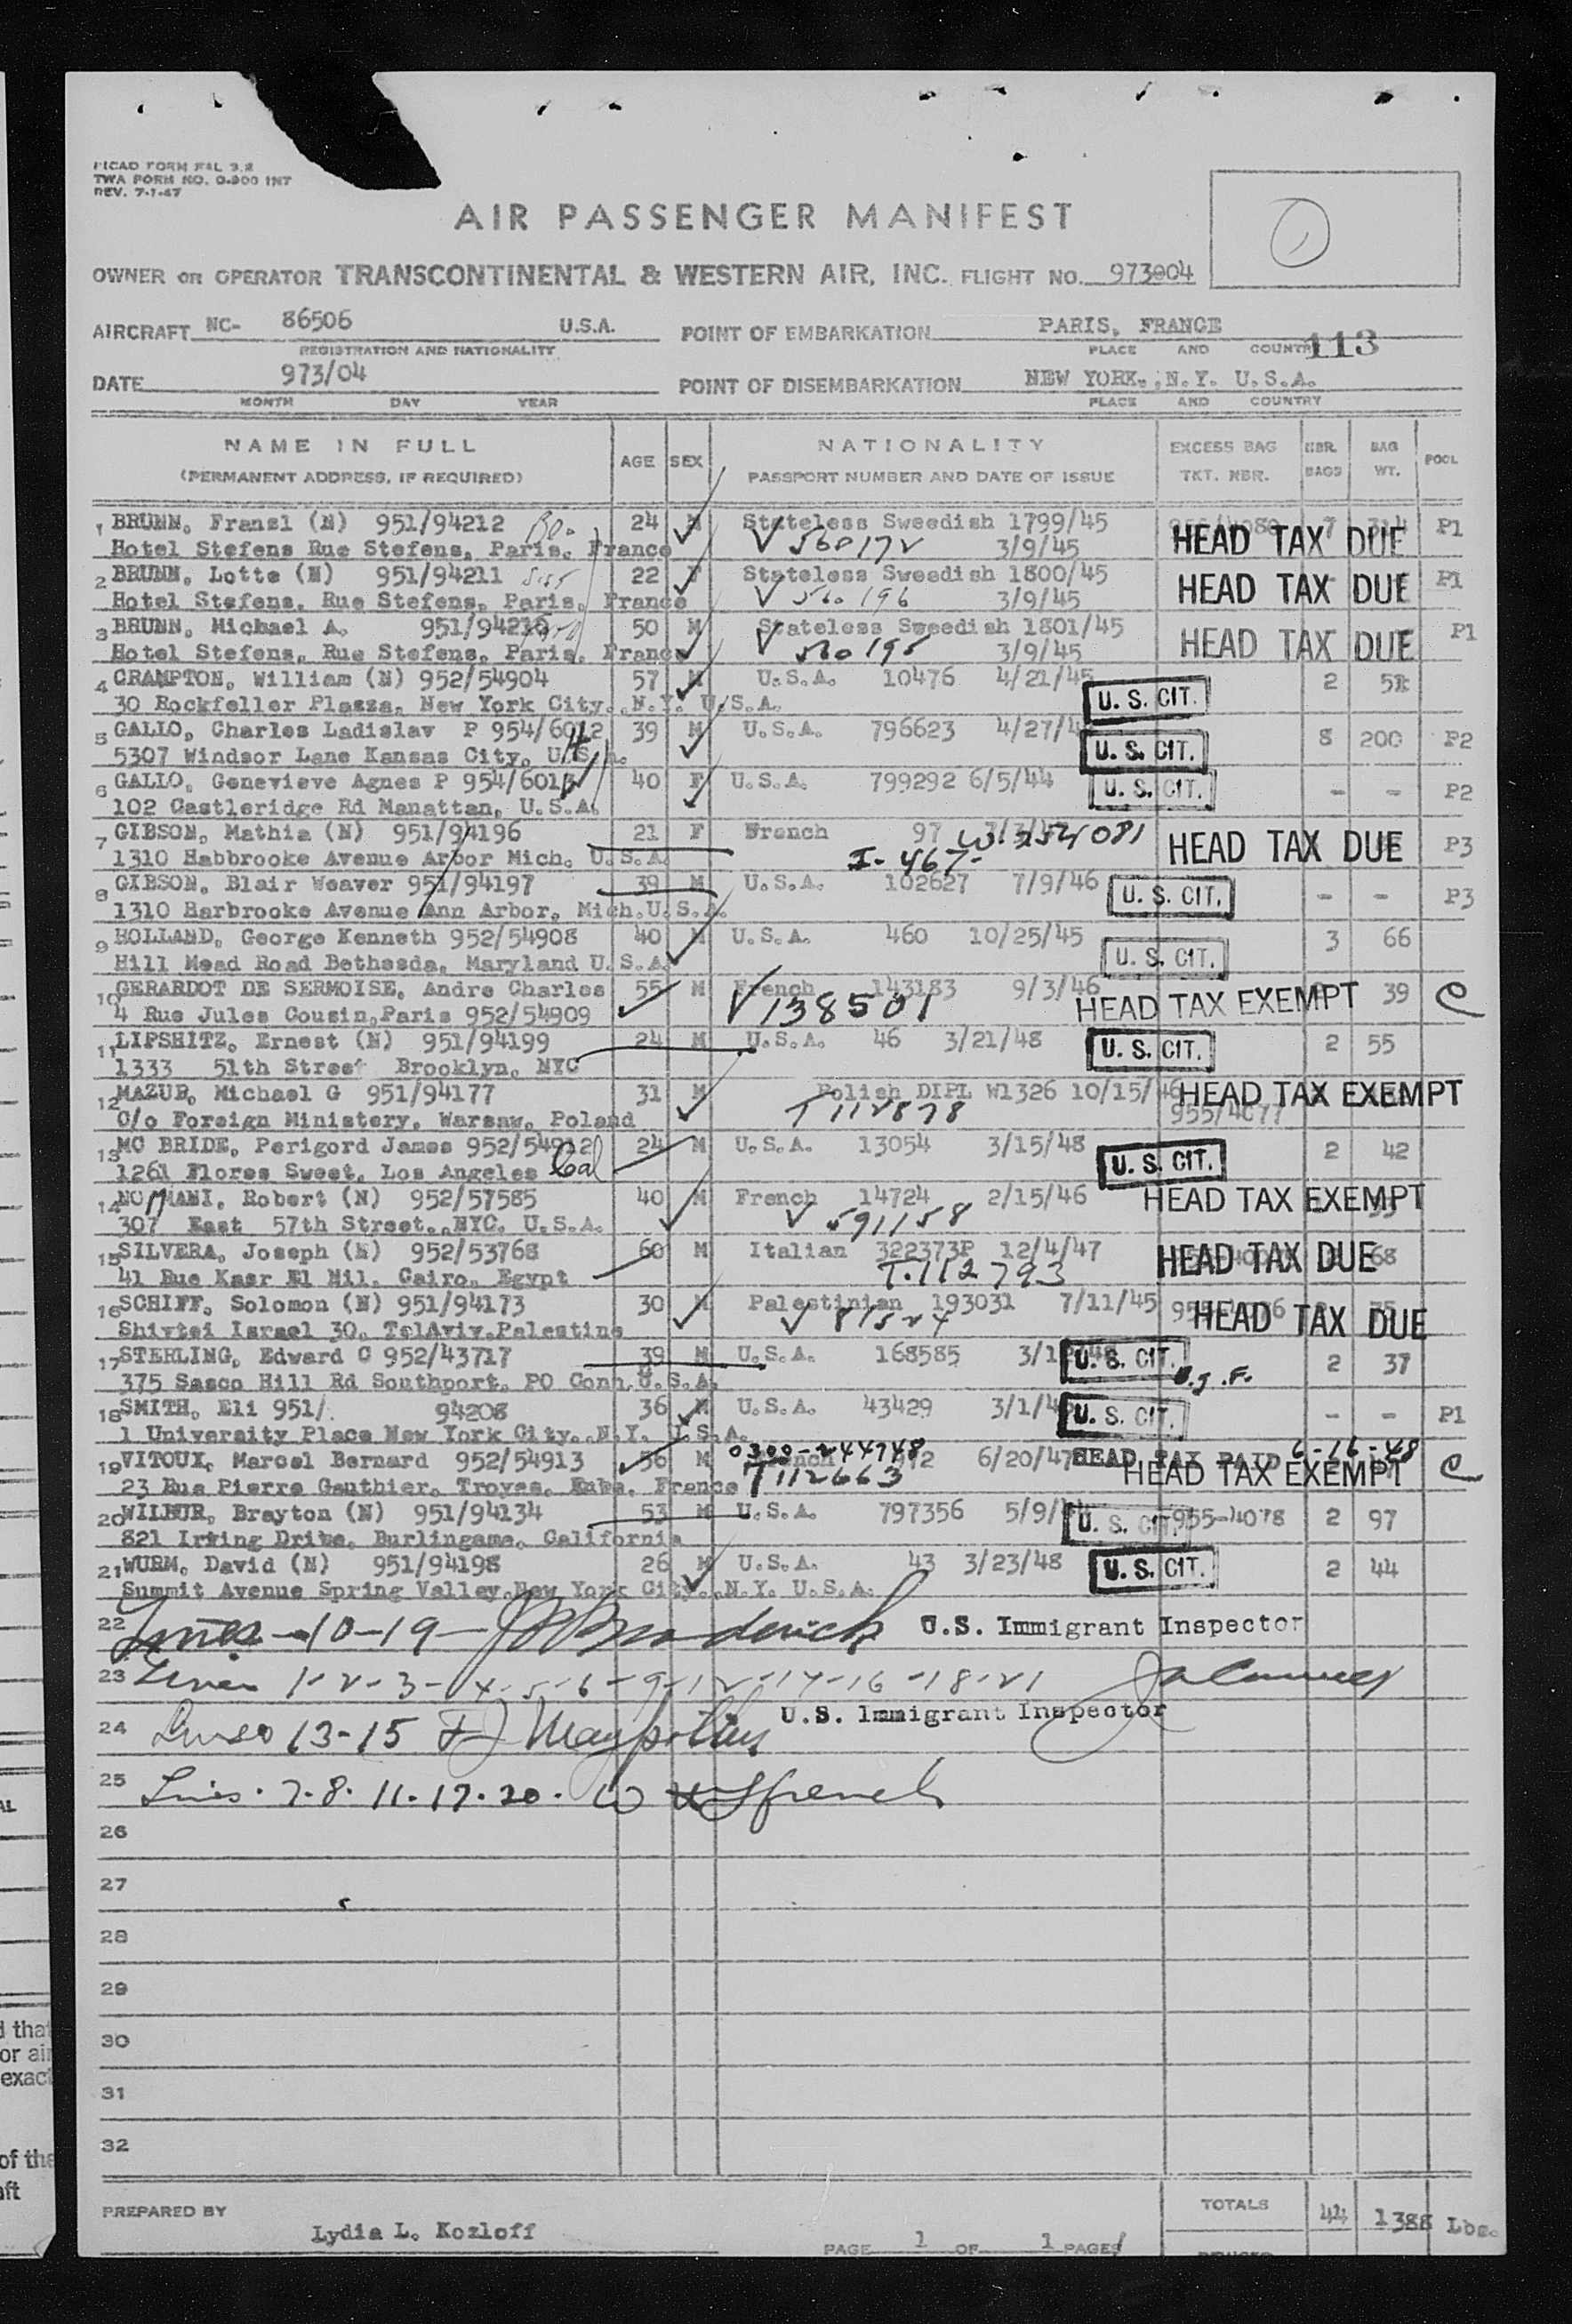 PICAO FORM FAL 3.2
TWA FORM NO. O-300 INT
REV. 7-1-47
AIR PASSENGER MANIFEST
OWNER OR OPERATOR TRANSCONTINENTAL & WESTERN AIR, INC. FLIGHT NO. 973004
AIRCRAFT NC- 86506 U.S.A. POINT OF EMBARKATION PARIS, FRANCE
REGISTRATION AND NATIONALITY PLACE AND COUNTRY 113
DATE 973/04 POINT OF DISEMBARKATION NEW YORK., N.Y. U.S.A.
MONTH DAY YEAR PLACE AND COUNTRY
NAME IN FULL AGE SEX NATIONALITY EXCESS BAG NBR. BAG POOL
(PERMANENT ADDRESS, IF REQUIRED) PASSPORT NUMBER AND DATE OF ISSUE TKT. NBR. BAGS WT.
1 BRUNN, Franzl (N) 951/94212 24 M Stateless Sweedish 1799/45 HEAD TAX DUE 7 P1
Hotel Stefens Rue Stefens, Paris. France V 560172 3/9/45
2 BRUNN, Lotte (N) 951/94211 22 F Stateless Sweedish 1800/45 HEAD TAX DUE P1
Hotel Stefens, Rue Stefens, Paris, France V 560196 3/9/45
3 BRUNN, Michael A. 951/94210 50 M Stateless Sweedish 1801/45 HEAD TAX DUE P1
Hotel Stefens, Rue Stefens, Paris, France V 560195 3/9/45
4 CRAMPTON, William (N) 952/54904 57 M U.S.A. 10476 4/21/45 U. S. CIT. 2
30 Rockfeller Plazza, New York City., N.Y. U.S.A.
5 GALLO, Charles Ladislav P 954/6012 39 M U.S.A. 796623 4/27/4 U. S. CIT. 8 200 P2
5307 Windsor Lane Kansas City, U.S.A.
6 GALLO, Genevieve Agnes P 954/6013 40 F U.S.A. 799292 6/5/44 U. S. CIT. - - P2
102 Castleridge Rd Manattan, U.S.A.
7 GIBSON, Mathia (N) 951/94196 21 F French 97 HEAD TAX DUE P3
1310 Habbrooke Avenue Arbor Mich. U.S.A. I-467-
8 GIBSON, Blair Weaver 951/94197 39 M U.S.A. 102627 7/9/46 U. S. CIT. - - P3
1310 Harbrooke Avenue Ann Arbor, Mich.U.S.A.
9 HOLLAND, George Kenneth 952/54908 40 M U.S.A. 460 10/25/45 U. S. CIT. 3 66
Hill Mead Road Bethesda, Maryland U.S.A.
10 GERARDOT DE SERMOISE, Andre Charles 55 M French 143183 9/3/46 HEAD TAX EXEMPT 39 C
4 Rue Jules Cousin,Paris 952/54909 V 138501
11 LIPSHITZ, Ernest (N) 951/94199 24 M U.S.A. 46 3/21/48 U. S. CIT. 2 55
1333 51th Street Brooklyn, NYC
12 MAZUR, Michael G 951/94177 31 M Polish DIPL W1326 10/15/46 HEAD TAX EXEMPT
C/o Foreign Ministery, Warsaw, Poland T 112878 955/4077
13 MC BRIDE, Perigord James 952/54912 24 M U.S.A. 13054 3/15/48 U. S. CIT. 2 42
1261 Flores Sweet, Los Angeles Cal
14 NORMANI, Robert (N) 952/57585 40 M French 14724 2/15/46 HEAD TAX EXEMPT
307 East 57th Street.,NYC. U.S.A. V 591158
15 SILVERA, Joseph (N) 952/53768 60 M Italian 322373P 12/4/47 HEAD TAX DUE 68
41 Rue Kasr El Nil, Cairo, Egypt T.112793
16 SCHIFF, Solomon (N) 951/94173 30 M Palestinian 193031 7/11/45 HEAD TAX DUE
Shivtei Israel 30, TelAviv.Palestine V 81524
17 STERLING, Edward C 952/43717 39 M U.S.A. 168585 3/1 U. S. CIT. 2 37
375 Sasco Hill Rd Southport, PO Conn.U.S.A.
18 SMITH, Eli 951/. 94208 36 M U.S.A. 43429 3/1/4 U. S. CIT. - - P1
1 University Place New York City., N.Y. U.S.A.
19 VITOUX, Marcel Bernard 952/54913 36 M 0300-244748 6/20/47 HEAD TAX PAID 6-16-48
23 Rue Pierre Gauthier, Troyes, France T112663 HEAD TAX EXEMPT C
20 WILBUR, Brayton (N) 951/94134 53 M U.S.A. 797356 5/9/ U. S. CIT. 955-4078 2 97
821 Irwing Drive, Burlingame, California
21 WURM, David (N) 951/94198 26 M U.S.A. 43 3/23/48 U. S. CIT. 2 44
Summit Avenue Spring Valley,New York City., N.Y. U.S.A.
22 Lines -10-19- Broderick U.S. Immigrant Inspector
23 Lines 1-2-3-4-5-6-9-12-14-16-18-21
U.S. Immigrant Inspector
24 Lines 13-15
25 Lines. 7.8. 11.17.20.
26
27
28
29
30
31
32
PREPARED BY TOTALS 44 1388 Lbs.
Lydia L. Kozloff
PAGE 1 OF 1 PAGES